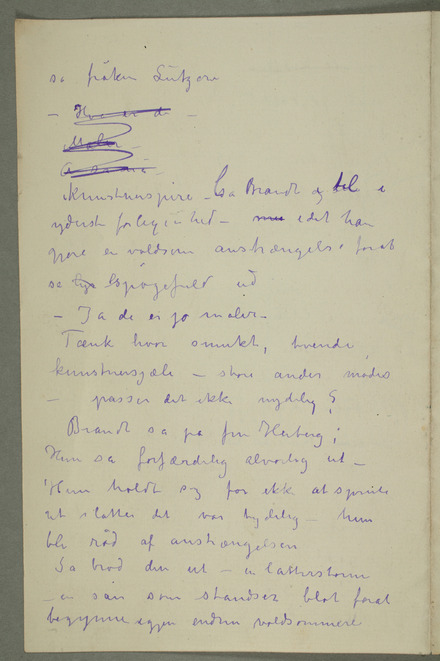 sa frøken Lützow
– Hva er de –
Maler –
kunstnerspire – sa Brandt og ble i
yderste forlegenhed – idet han
gjore en voldsom anstrængelse forat
se spøgefuld ud
– Ja de er jo maler –
Tænk hvor smukt, tvende
kunstnersjæle – store ander mødes
– passer det ikke nydelig?
Brandt sa pa fru Heiberg;
Hun sa forfærdelig alvorlig ut –
Hun holdt sig for ikke at sprute
ut i latter det var tydelig – hun
ble rød af anstrængelsen
Sa brød den ut – en latterstorm
– en sån som standser blot forat
begynne igjen endnu voldsommere